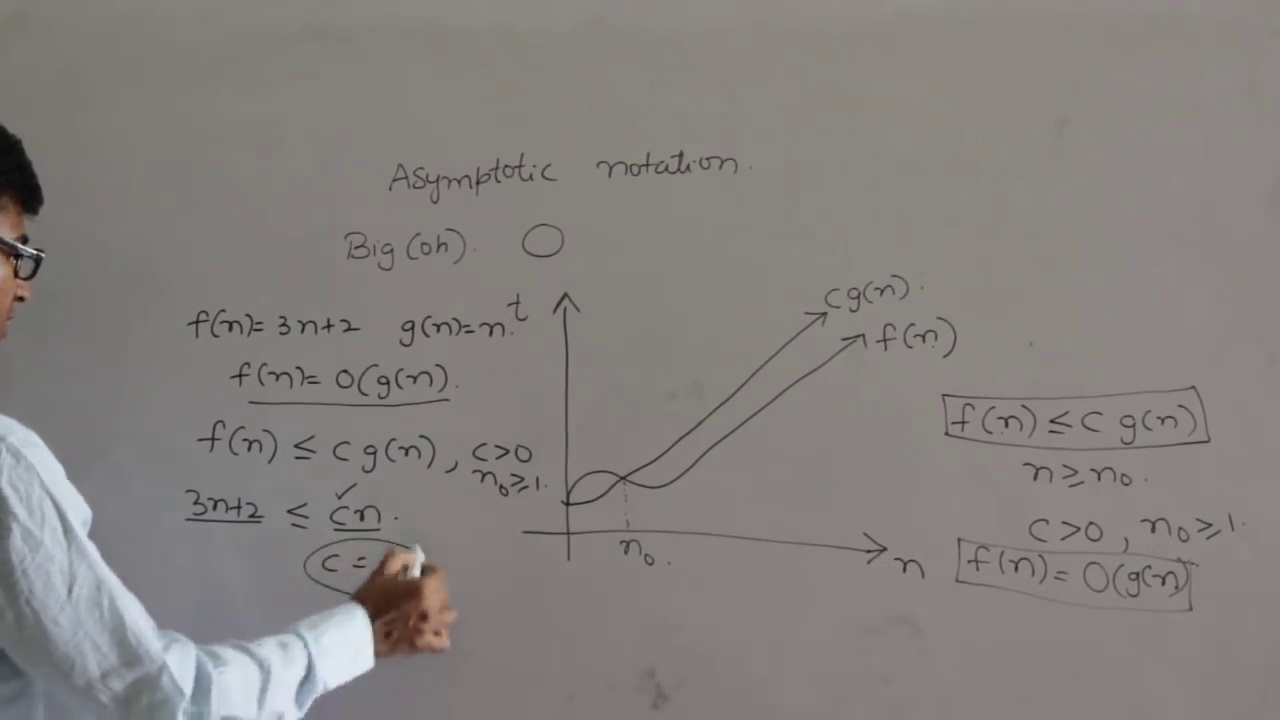 Asymptotic notation.
Big(oh). O
f(n)= 3n+2 g(n)=n.
f(n)= O(g(n).
f(n) ≤ c g(n), c>0
n₀≥1.
3n+2 ≤ cn.
c =
t
cg(n).
f(n)
n₀.
n
f(n) ≤ c g(n)
n≥n₀.
c>0, n₀≥1.
f(n)= O(g(n)